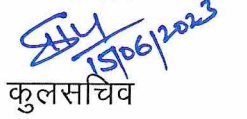 15/06/2023
कुलसचिव